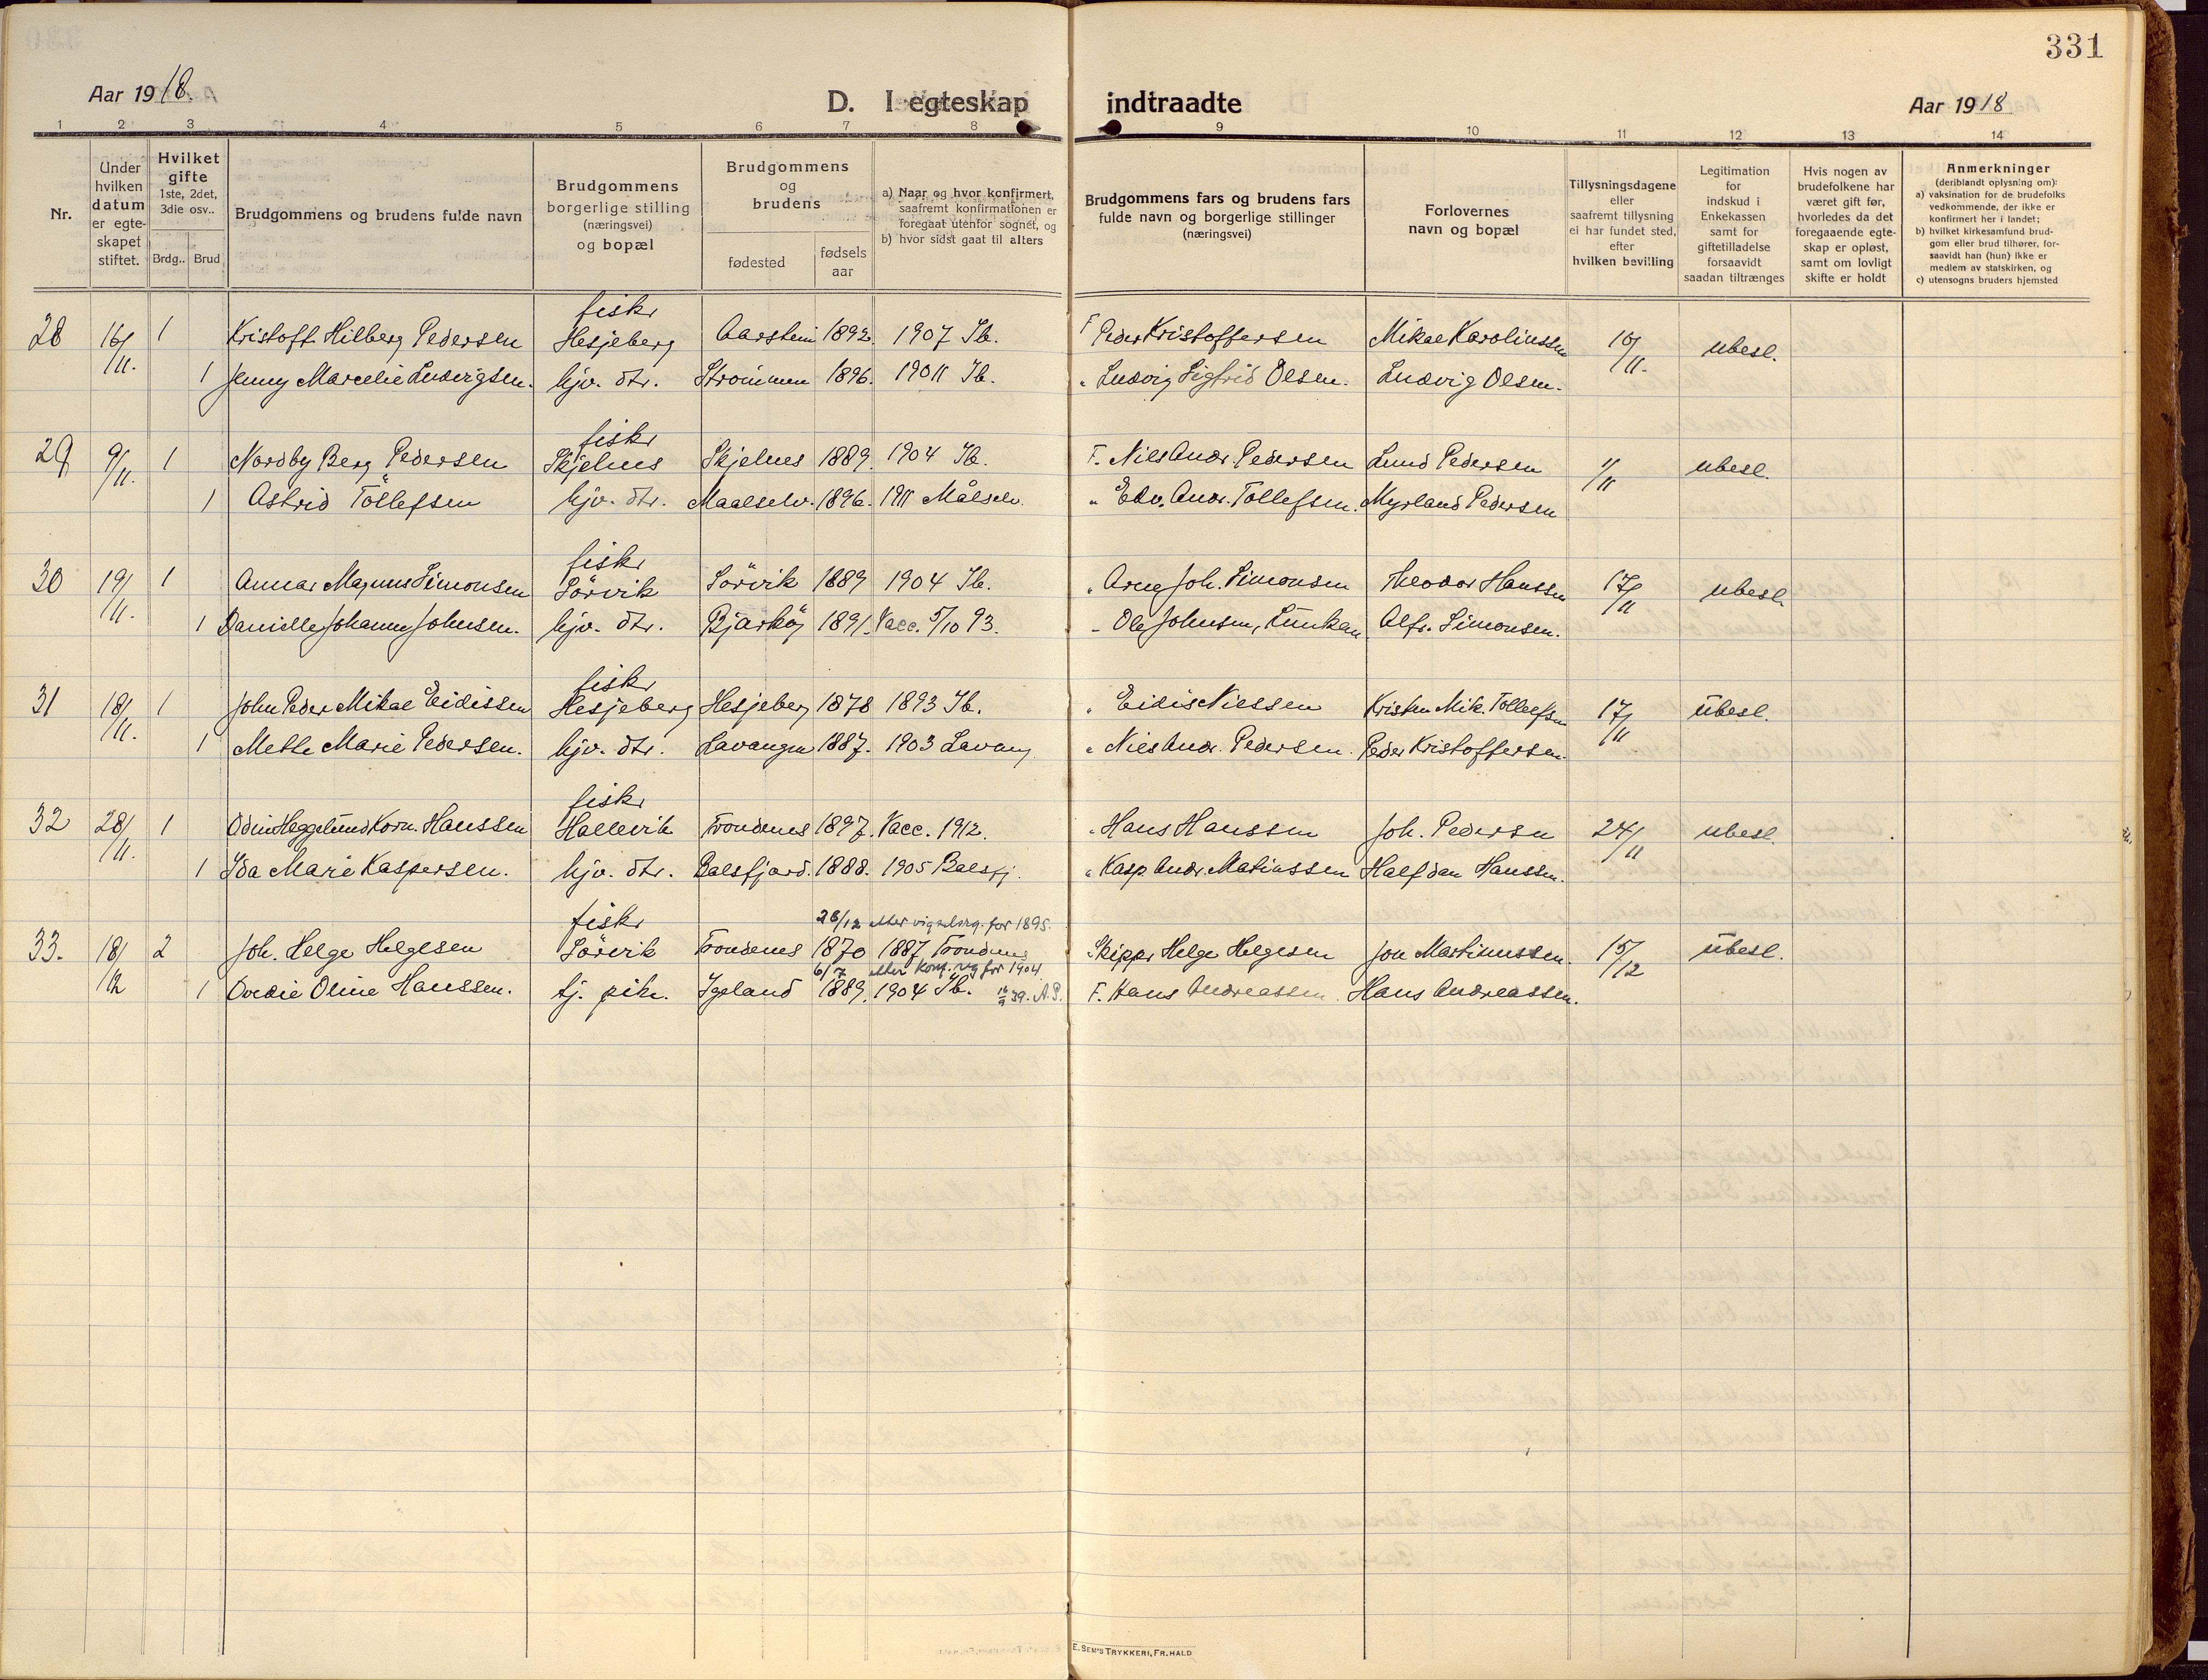 331
Aar 1918. D. I egteskap indtraadte Aar 1918
1 2 3 4 5 6 7 8 9 10 11 12 13 14
Nr.
Under hvilken datum er egteskapet stiftet.
Hvilket gifte 1ste, 2det, 3die osv..
Brdg.. Brud
Brudgommens og brudens fulde navn
Brudgommens borgerlige stilling (næringsvei) og bopæl
Brudgommens og brudens
fødested
fødselsaar
a) Naar og hvor konfirmert, saafremt konfirmationen er foregaat utenfor sognet, og
b) hvor sidst gaat til alters
Brudgommens fars og brudens fars fulde navn og borgerlige stillinger (næringsvei)
Forlovernes navn og bopæl
Tillysningsdagene eller saafremt tillysning ei har fundet sted, efter hvilken bevilling
Legitimation for indskud i Enkekassen samt for giftetilladelse forsaavidt saadan tiltrænges
Hvis nogen av brudefolkene har været gift før, hvorledes da det foregaaende egteskap er opløst, samt om lovligt skifte er holdt
Anmerkninger (deriblandt oplysning om):
a) vaksination for de brudefolks vedkommende, der ikke er konfirmert her i landet;
b) hvilket kirkesamfund brudgom eller brud tilhører, forsaavidt han (hun) ikke er medlem av statskirken, og
c) utensogns bruders hjemsted
fiskr
28 16/11. 1 Kristoff. Hilberg Pedersen Hesjeberg Aarstein 1892. 1907 Ib. F Peder Kristoffersen Mikal Karolinssen 10/11. ubesl.
1 Jenny Marcelie Ludvigsen. hjv. dtr. Strømmen 1896. 1911 Ib. " Ludvig Sigfrid Olsen. Ludvig Olsen.
fiskr
29 9/11. 1 Nordby Berg Pedersen Skjelnes Skjelnes 1889. 1904 Ib. F. Nils Andr. Pedersen Lund Pedersen 1/11 ubesl.
1 Astrid Tollefsen hjv. dtr. Maalselv. 1896. 1911 Målselv. " Edv. Andr. Tollefsen. Myrland Pedersen
fiskr
30 19/11. 1 Annar Magnus Simonsen Sörvik Sörvik 1889 1904 Ib. " Arne Joh. Simonsen Theodor Hanssen 17/11 ubesl.
1 Danielle Johanne Johnsen. hjv. dtr. Bjarköy 1891. Vacc. 5/10 93. " Ole Johnsen, Kunkan Alfr. Simonsen.
fiskr
31 18/11. 1 John Peder Mikal Eidissen Hesjeberg Hesjeberg 1878 1893 Ib. " Eidis Nilssen Kristen Mik. Tollefsen 17/11 ubesl.
1 Mette Marie Pedersen. hjv. dtr. Lavangen 1887. 1903 Lavang. " Nils Andr. Pedersen. Peder Kristoffersen.
fiskr
32 28/11. 1 Odin Heggelund Korn. Hanssen Hallevik Trondenes 1897. Vacc. 1912. " Hans Hanssen Joh. Pedersen 24/11 ubesl.
1 Ida Marie Kaspersen. hjv. dtr. Balsfjord. 1888. 1905 Balsfj. " Kasp. Andr. Matiussen Halfdan Hanssen.
fiskr 28/12 etter vigselsrg. for 1895.
33. 18/12 2 Joh. Helge Helgesen Sörvik Trondenes 1870 1887 Trondenes Skippr Helge Helgesen Jon Martinussen. 15/12 ubesl.
6/7 etter konf. rg for 1904.
1 Dordie Oline Hanssen. tj. pike. Igeland 1889. 1904 Ib. 16/9 39. A.P. F. Hans Andreassen. Hans Andreassen.
E. SEM'S TRYKKERI, FR.HALD